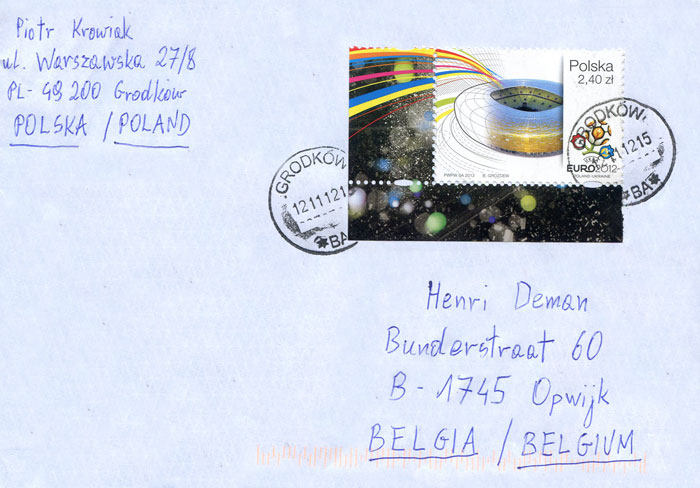 Piotr Krowiak
ul. Warszawska 27/8
PL- 49 200 Grodków
POLSKA / POLAND
Polska
2,40 zł
PWPW SA 2012 B. GROZDEW
EURO2012
POLAND-UKRAINE
GRODKÓW
12111215
*BA*
GRODKÓW
121112
*BA
Henri Deman
Bunderstraat 60
B - 1745 Opwijk
BELGIA / BELGIUM